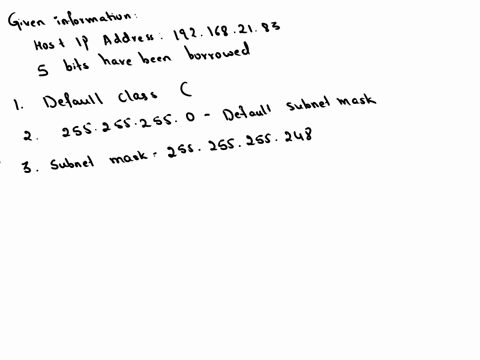 Given information:
Host IP Address: 192.168.21.83
5 bits have been borrowed
1. Defaull class C
2. 255.255.255.0 - Defaull subnet mask
3. Subnet mask - 255.255.255.248